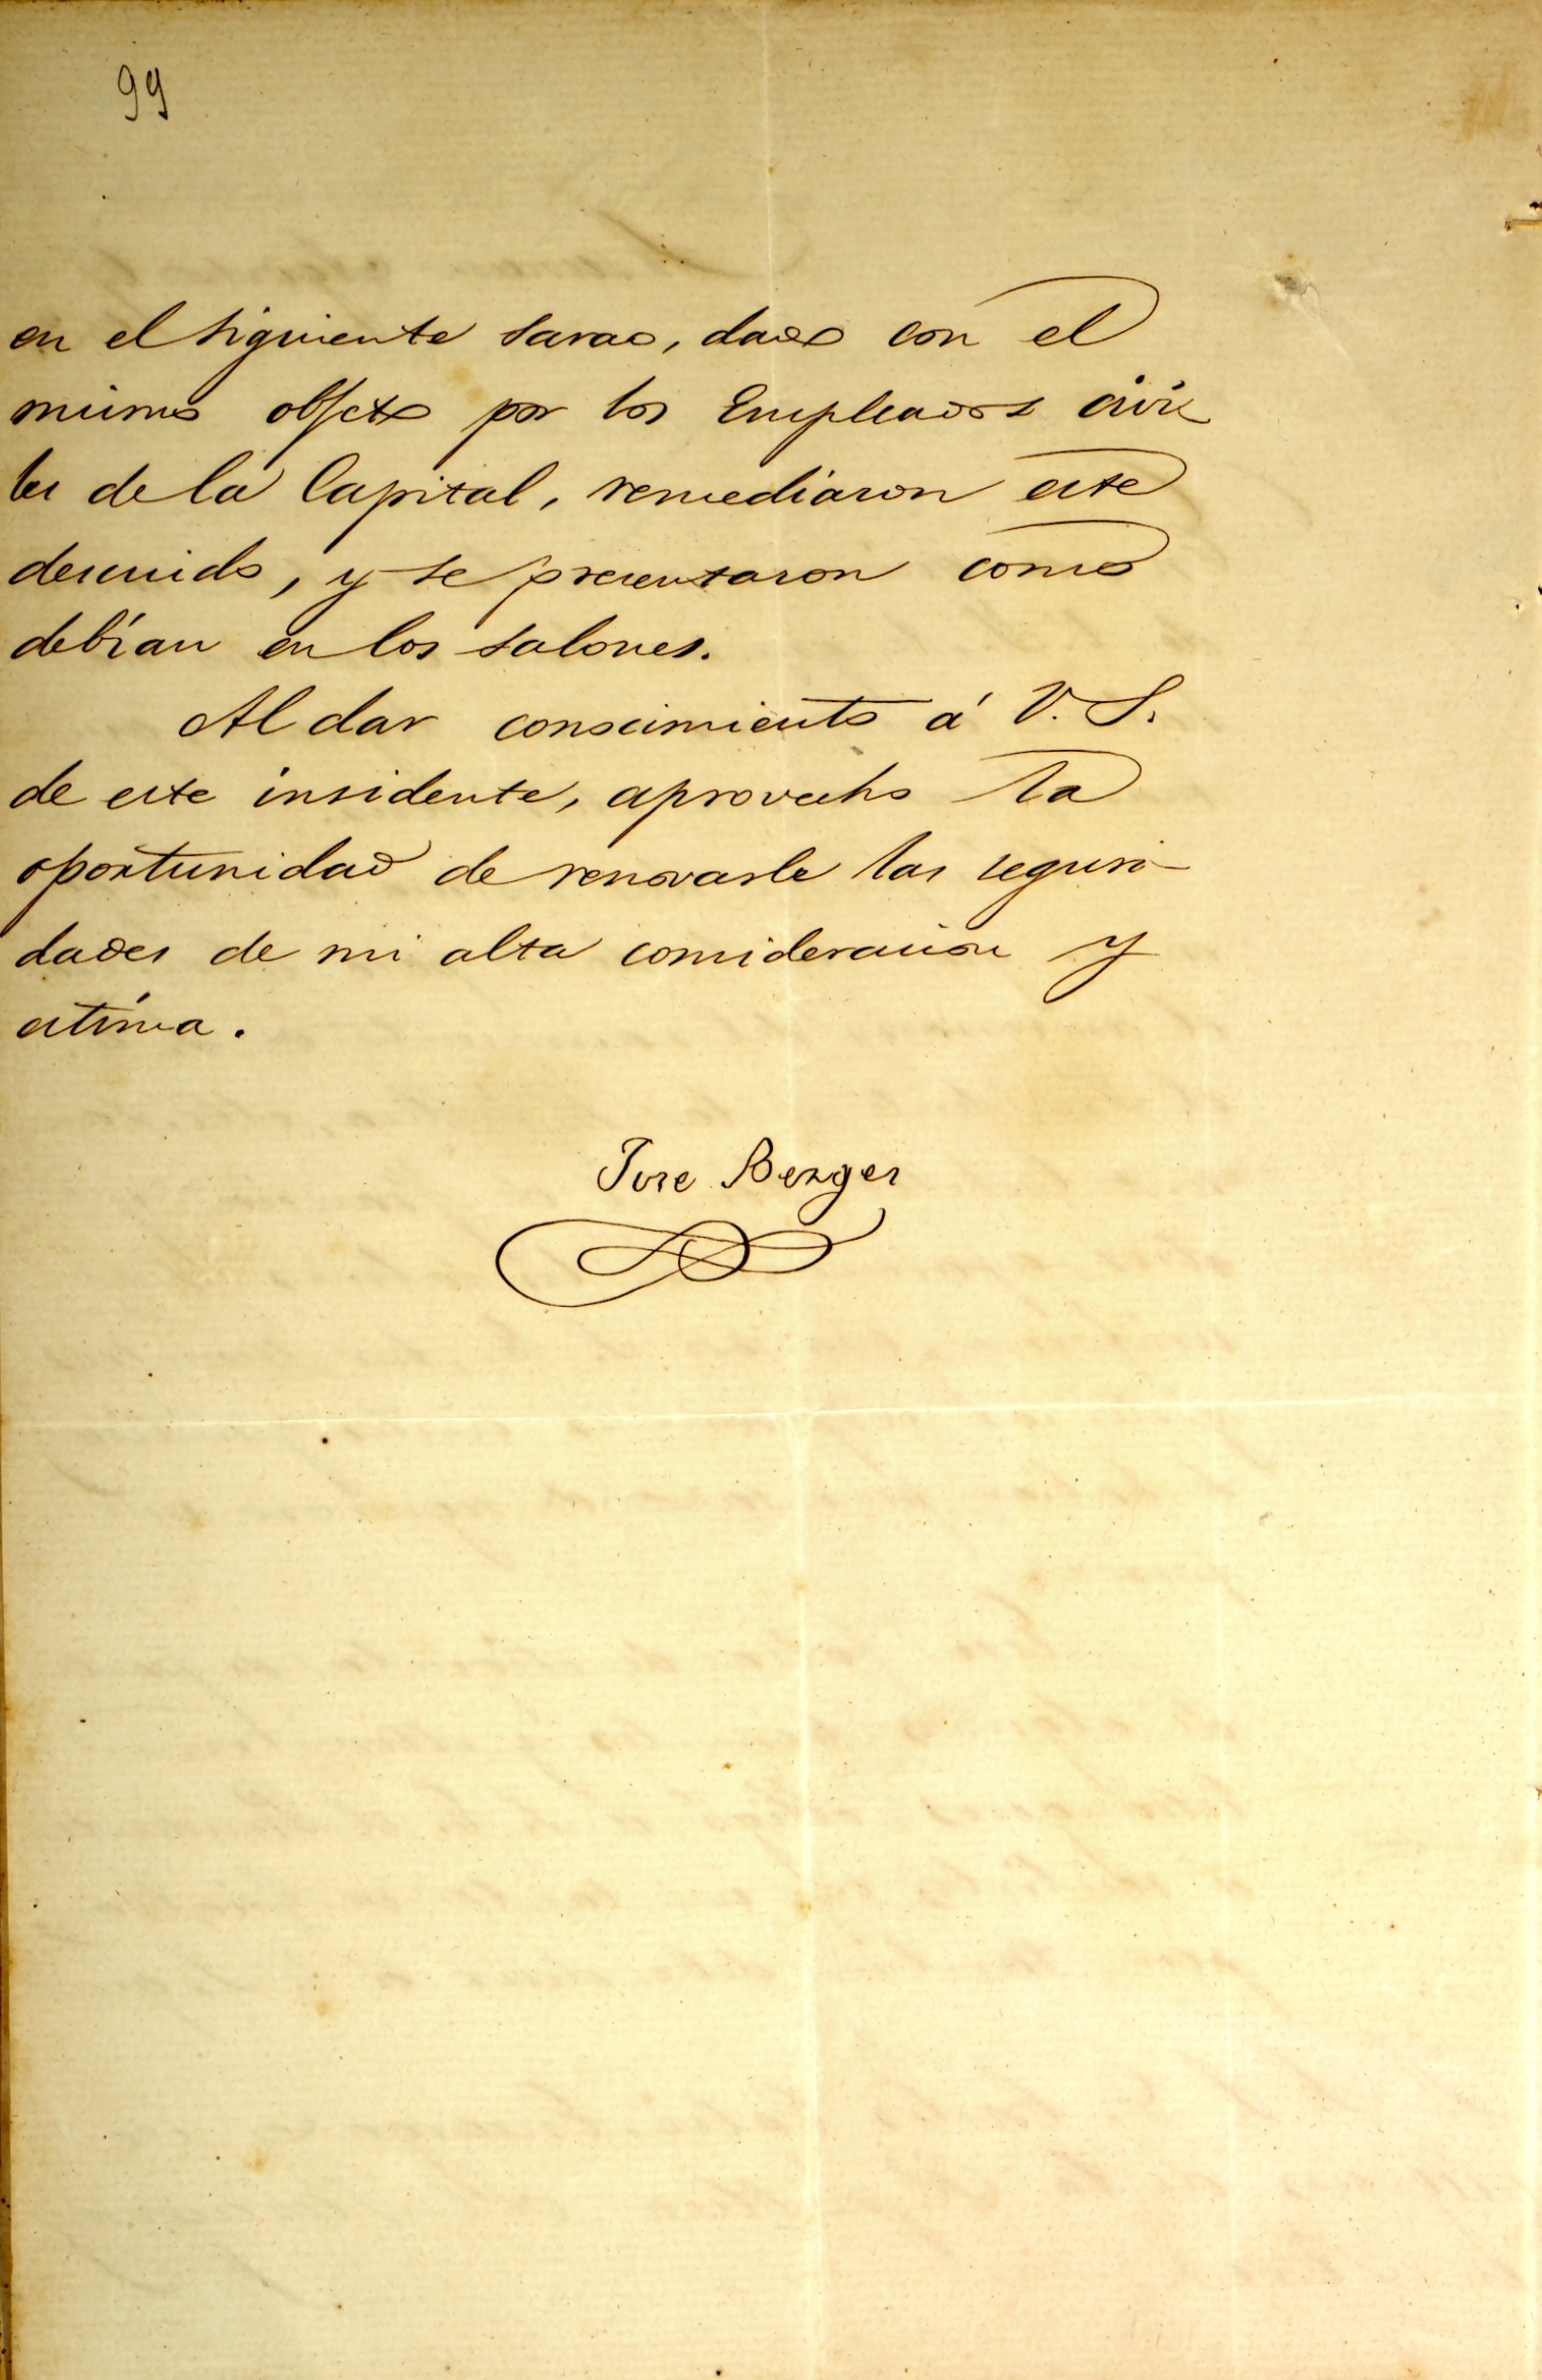 99
en el siguiente sarao, dado con el
mismo objeto por los Empleados civi
les de la Capital, remediaron este
descuido, y se presentaron como
debían en los salones.
Al dar conocimiento á V. S.
de este insidente, aprovecho la
oportunidad de renovarle las seguri-
dades de mi alta consideracion y
estima.
Jose Berges